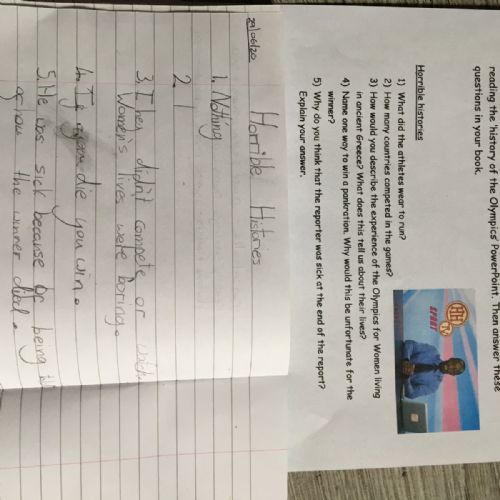 reading the 'history of the Olympics' PowerPoint. Then answer these
questions in your book.
Horrible histories
1) What did the athletes wear to run?
2) How many countries competed in the games?
3) How would you describe the experience of the Olympics for Women living
in ancient Greece? What does this tell us about their lives?
4) Name one way to win a pankration. Why would this be unfortunate for the
winner?
5) Why do you think that the reporter was sick at the end of the report?
Explain your answer.
SPORT
29/06/20
Horrible Histories
1. Nothing
2. 1
3. They didn't compete or
Women's lives were boring.
4. If you die you win.
5. He was sick because of being
of how the winner died.